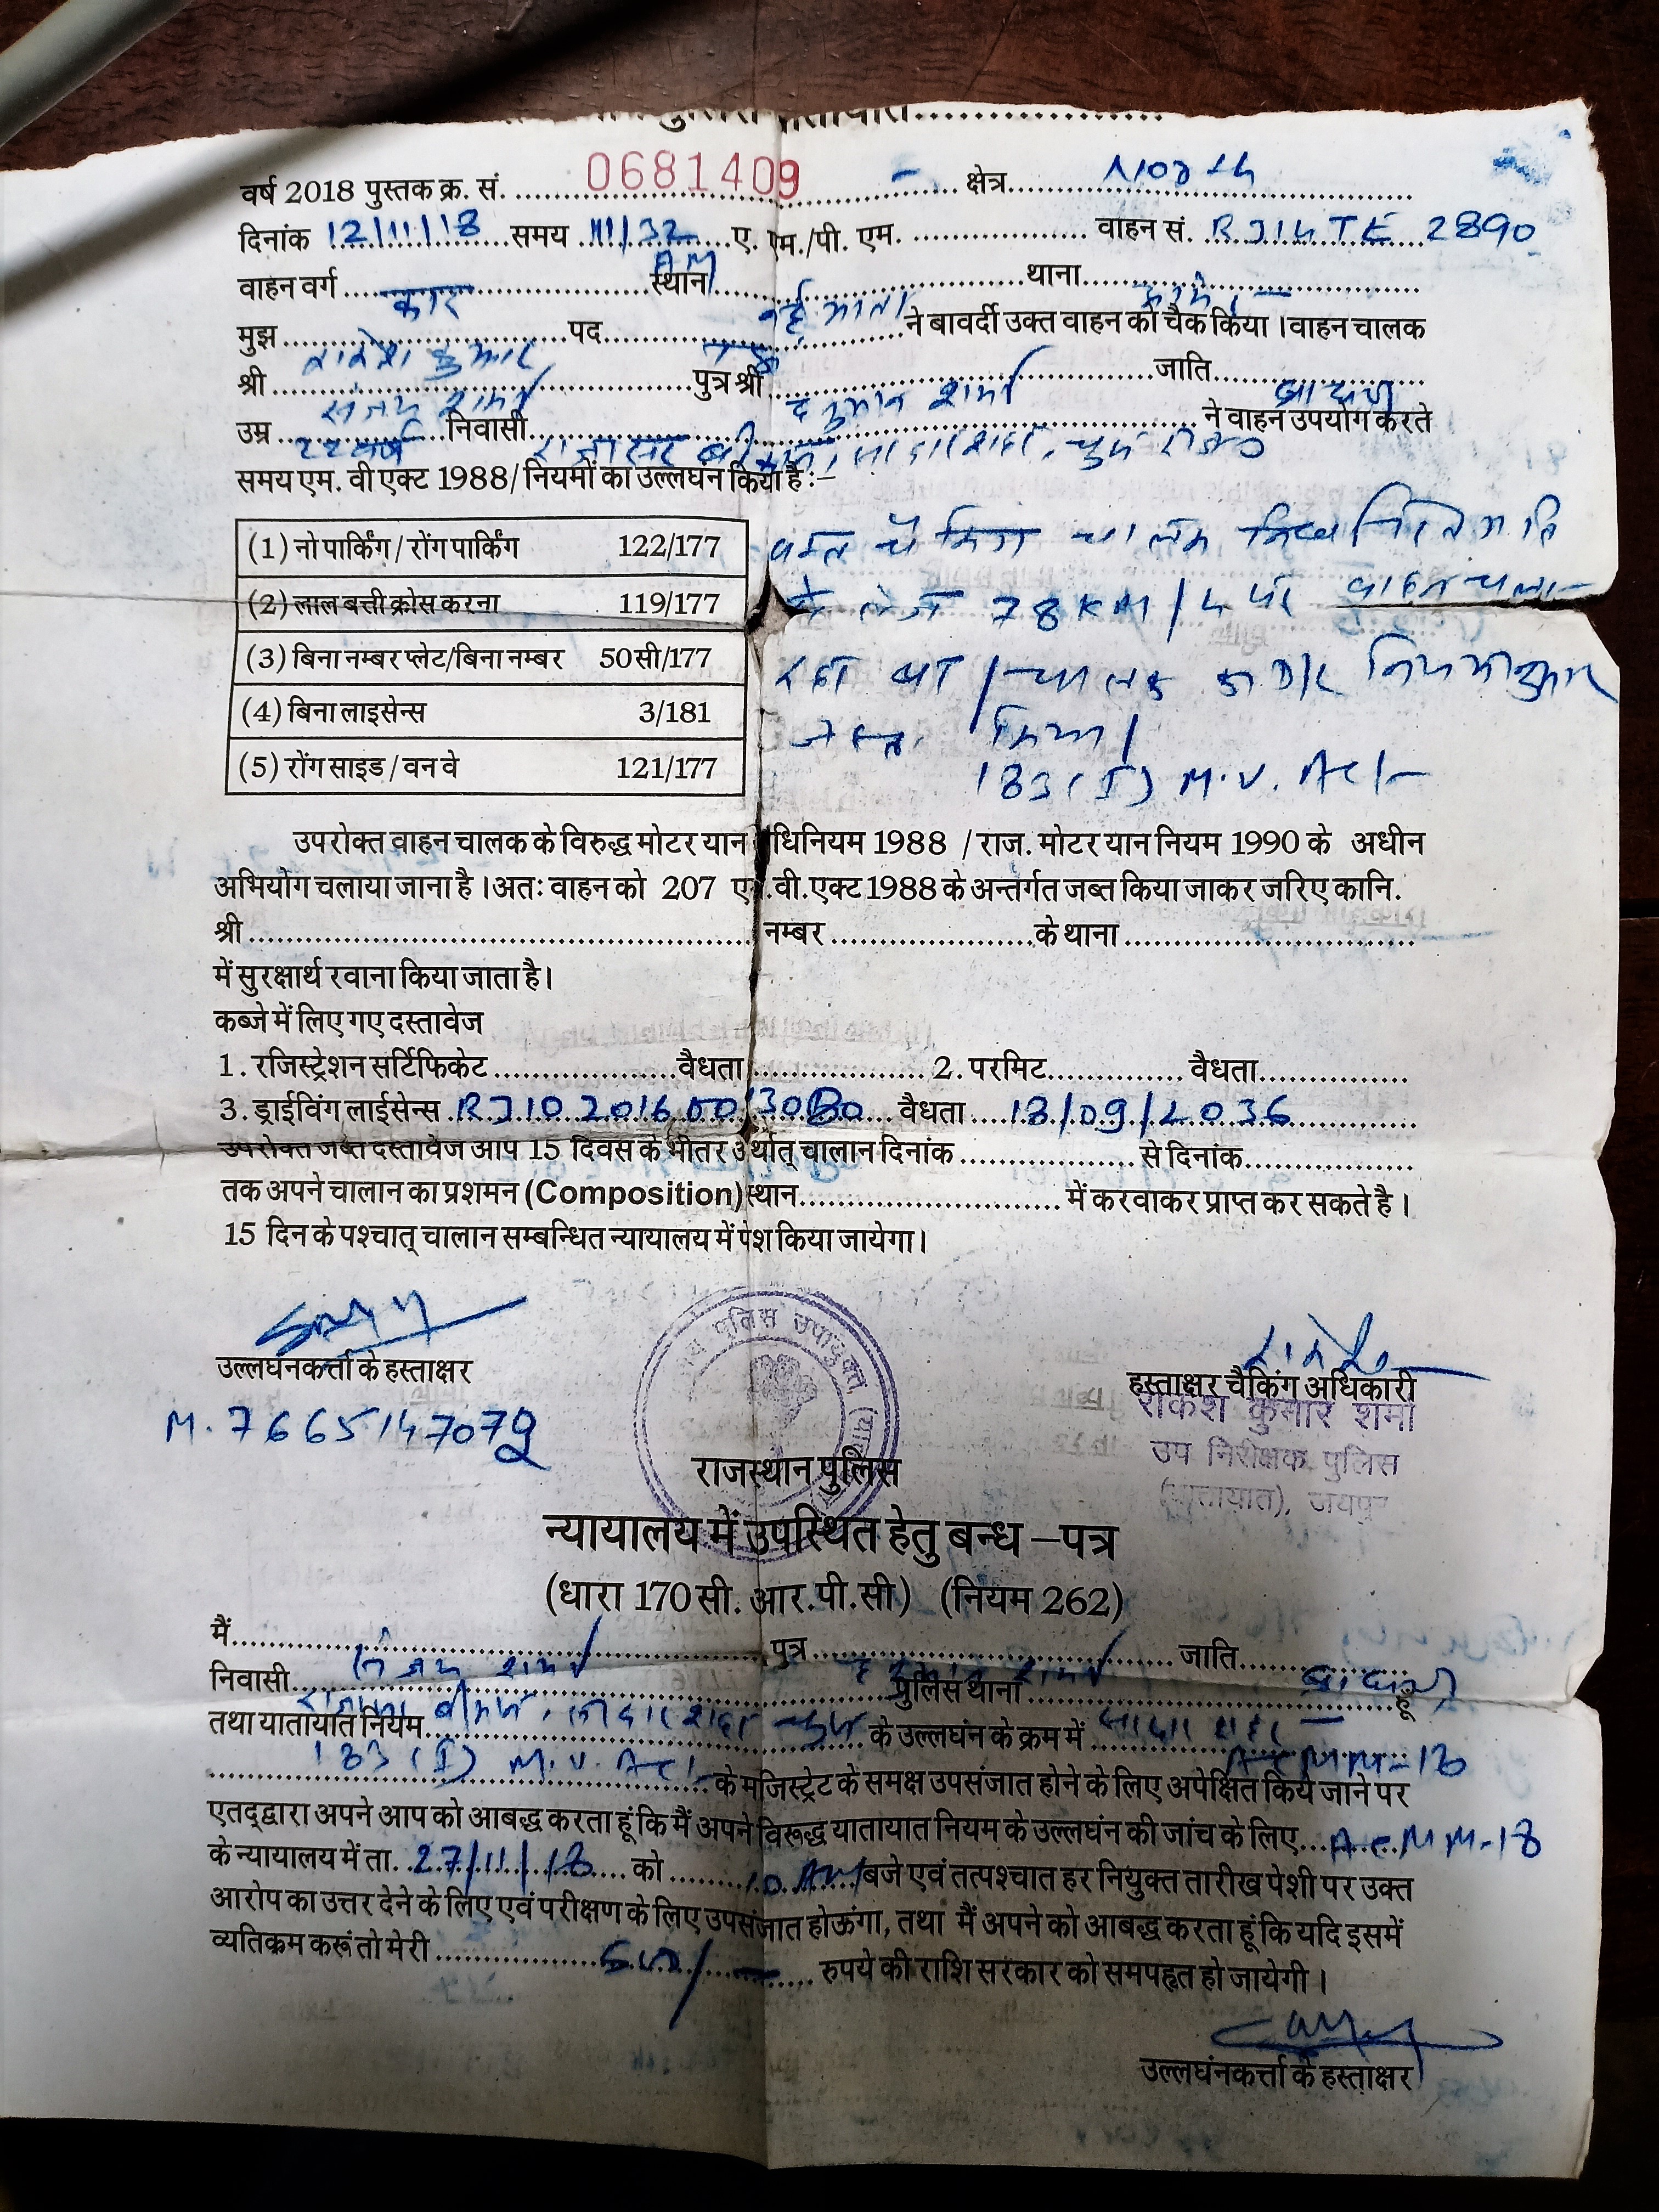 वर्ष 2018 पुस्तक क्र. सं. 0681409 क्षेत्र North
दिनांक 12/11/18 समय 11/32 AM ए. एम./पी. एम. वाहन सं. RJ14 TE 2890
वाहन वर्ग कार स्थान थाना
मुझ राकेश कुमार पद ने बावर्दी उक्त वाहन को चैक किया । वाहन चालक
श्री शर्मा पुत्र श्री हनुमान शर्मा जाति ब्राह्मण
उम्र 22 वर्ष निवासी ने वाहन उपयोग करते
समय एम. वी एक्ट 1988/ नियमों का उल्लघंन किया है :–
(1) नो पार्किंग / रोंग पार्किंग 122/177
(2) लाल बत्ती क्रोस करना 119/177
(3) बिना नम्बर प्लेट/बिना नम्बर 50सी/177
(4) बिना लाइसेन्स 3/181
(5) रोंग साइड / वन वे 121/177
वक्त चैकिंग चालक निर्धारित गति
से तेज 78 KM/h पर वाहन चला
रहा था / चालक का D/L नियमानुसार
जब्त किया /
183 (I) M.V. Act
उपरोक्त वाहन चालक के विरुद्ध मोटर यान धिनियम 1988 / राज. मोटर यान नियम 1990 के अधीन
अभियोग चलाया जाना है । अतः वाहन को 207 ए .वी.एक्ट 1988 के अन्तर्गत जब्त किया जाकर जरिए कानि.
श्री नम्बर के थाना
में सुरक्षार्थ रवाना किया जाता है।
कब्जे में लिए गए दस्तावेज
1. रजिस्ट्रेशन सर्टिफिकेट वैधता 2. परमिट वैधता
3. ड्राईविंग लाईसेन्स वैधता 18/09/2036
उपरोक्त जब्त दस्तावेज आप 15 दिवस के भीतर अर्थात् चालान दिनांक से दिनांक
तक अपने चालान का प्रशमन (Composition) स्थान में करवाकर प्राप्त कर सकते है ।
15 दिन के पश्चात् चालान सम्बन्धित न्यायालय में पेश किया जायेगा।
उल्लघंनकर्त्ता के हस्ताक्षर
M. 7665147079
हस्ताक्षर चैकिंग अधिकारी
राकेश कुमार शर्मा
उप निरीक्षक पुलिस
(यातायात), जयपुर
पुलिस उपायुक्त
राजस्थान पुलिस
न्यायालय में उपस्थित हेतु बन्ध –पत्र
(धारा 170 सी. आर.पी.सी) (नियम 262)
मैं शर्मा पुत्र हनुमान शर्मा जाति ब्राह्मण
निवासी पुलिस थाना हूं
तथा यातायात नियम 183 (I) M.V. Act के उल्लघंन के क्रम में ACMM-18
के मजिस्ट्रेट के समक्ष उपसंजात होने के लिए अपेक्षित किये जाने पर
एतद्द्वारा अपने आप को आबद्ध करता हूं कि मैं अपने विरूद्ध यातायात नियम के उल्लघंन की जांच के लिए ACMM-18
के न्यायालय में ता. 27/11/18 को 10 AM बजे एवं तत्पश्चात हर नियुक्त तारीख पेशी पर उक्त
आरोप का उत्तर देने के लिए एवं परीक्षण के लिए उपसंजात होऊंगा, तथा मैं अपने को आबद्ध करता हूं कि यदि इसमें
व्यतिक्रम करूं तो मेरी रुपये की राशि सरकार को समपहृत हो जायेगी ।
उल्लघंनकर्त्ता के हस्ताक्षर